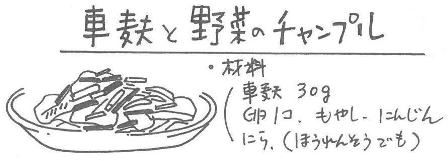 車麸と野菜のチャンプル
・材料
車麸 30g
卵1コ、もやし、にんじん
にら、(ほうれんそうでも)